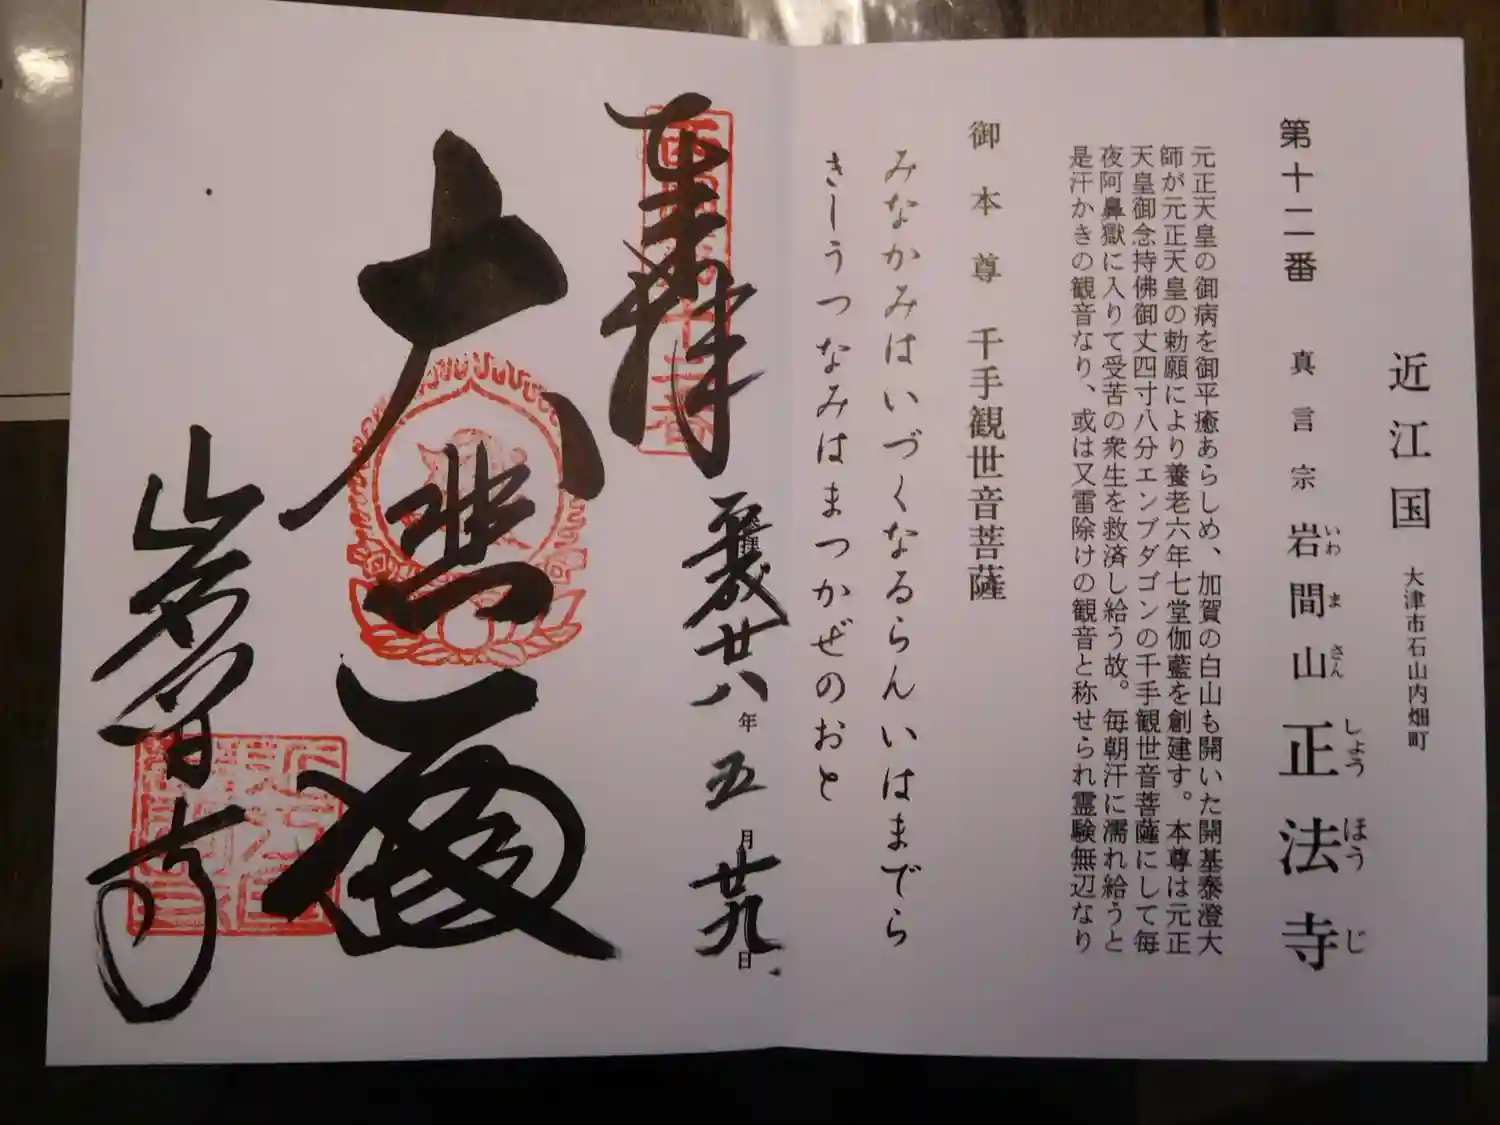 近江国 大津市石山内畑町
第十二番 真言宗 岩間山 正法寺
いわ ま さん しょう ほう じ
元正天皇の御病を御平癒あらしめ、加賀の白山も開いた開基泰澄大
師が元正天皇の勅願により養老六年七堂伽藍を創建す。本尊は元正
天皇御念持佛御丈四寸八分エンブダゴンの千手観世音菩薩にして毎
夜阿鼻獄に入りて受苦の衆生を救済し給う故。毎朝汗に濡れ給うと
是汗かきの観音なり、或は又雷除けの観音と称せられ霊験無辺なり
御本尊 千手観世音菩薩
みなかみはいづくなるらんいはまでら
きしうつなみはまつかぜのおと
奉拝
西国第十二番
平成廿八年五月廿九日
大悲殿
岩間寺